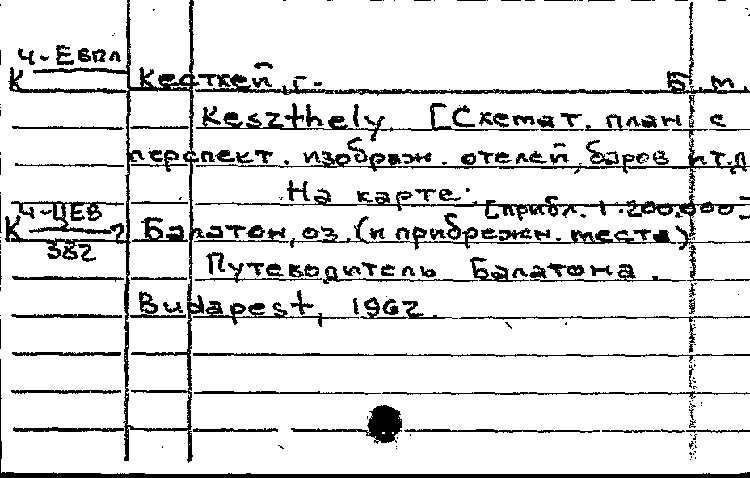 Ч-Евпл
К
Кесткей, г. Б.м.
Keszthely [Схемат. план с
перспект. изображ. отелей, баров и т.д
На карте:
[прибл. 1:200.000]
К Ч-ЦЕВ 382
Балатон, оз. (и прибрежн. места)
Путеводитель Балатона.
Budapest, 1962.